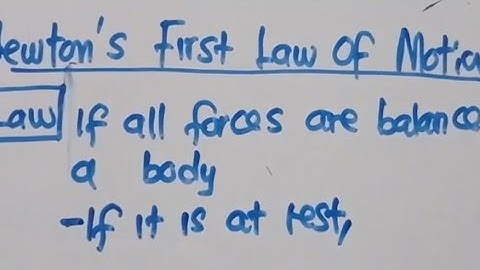 Newton's First Law Of Motio
Law If all forces are balance
a body
-If it is at rest,